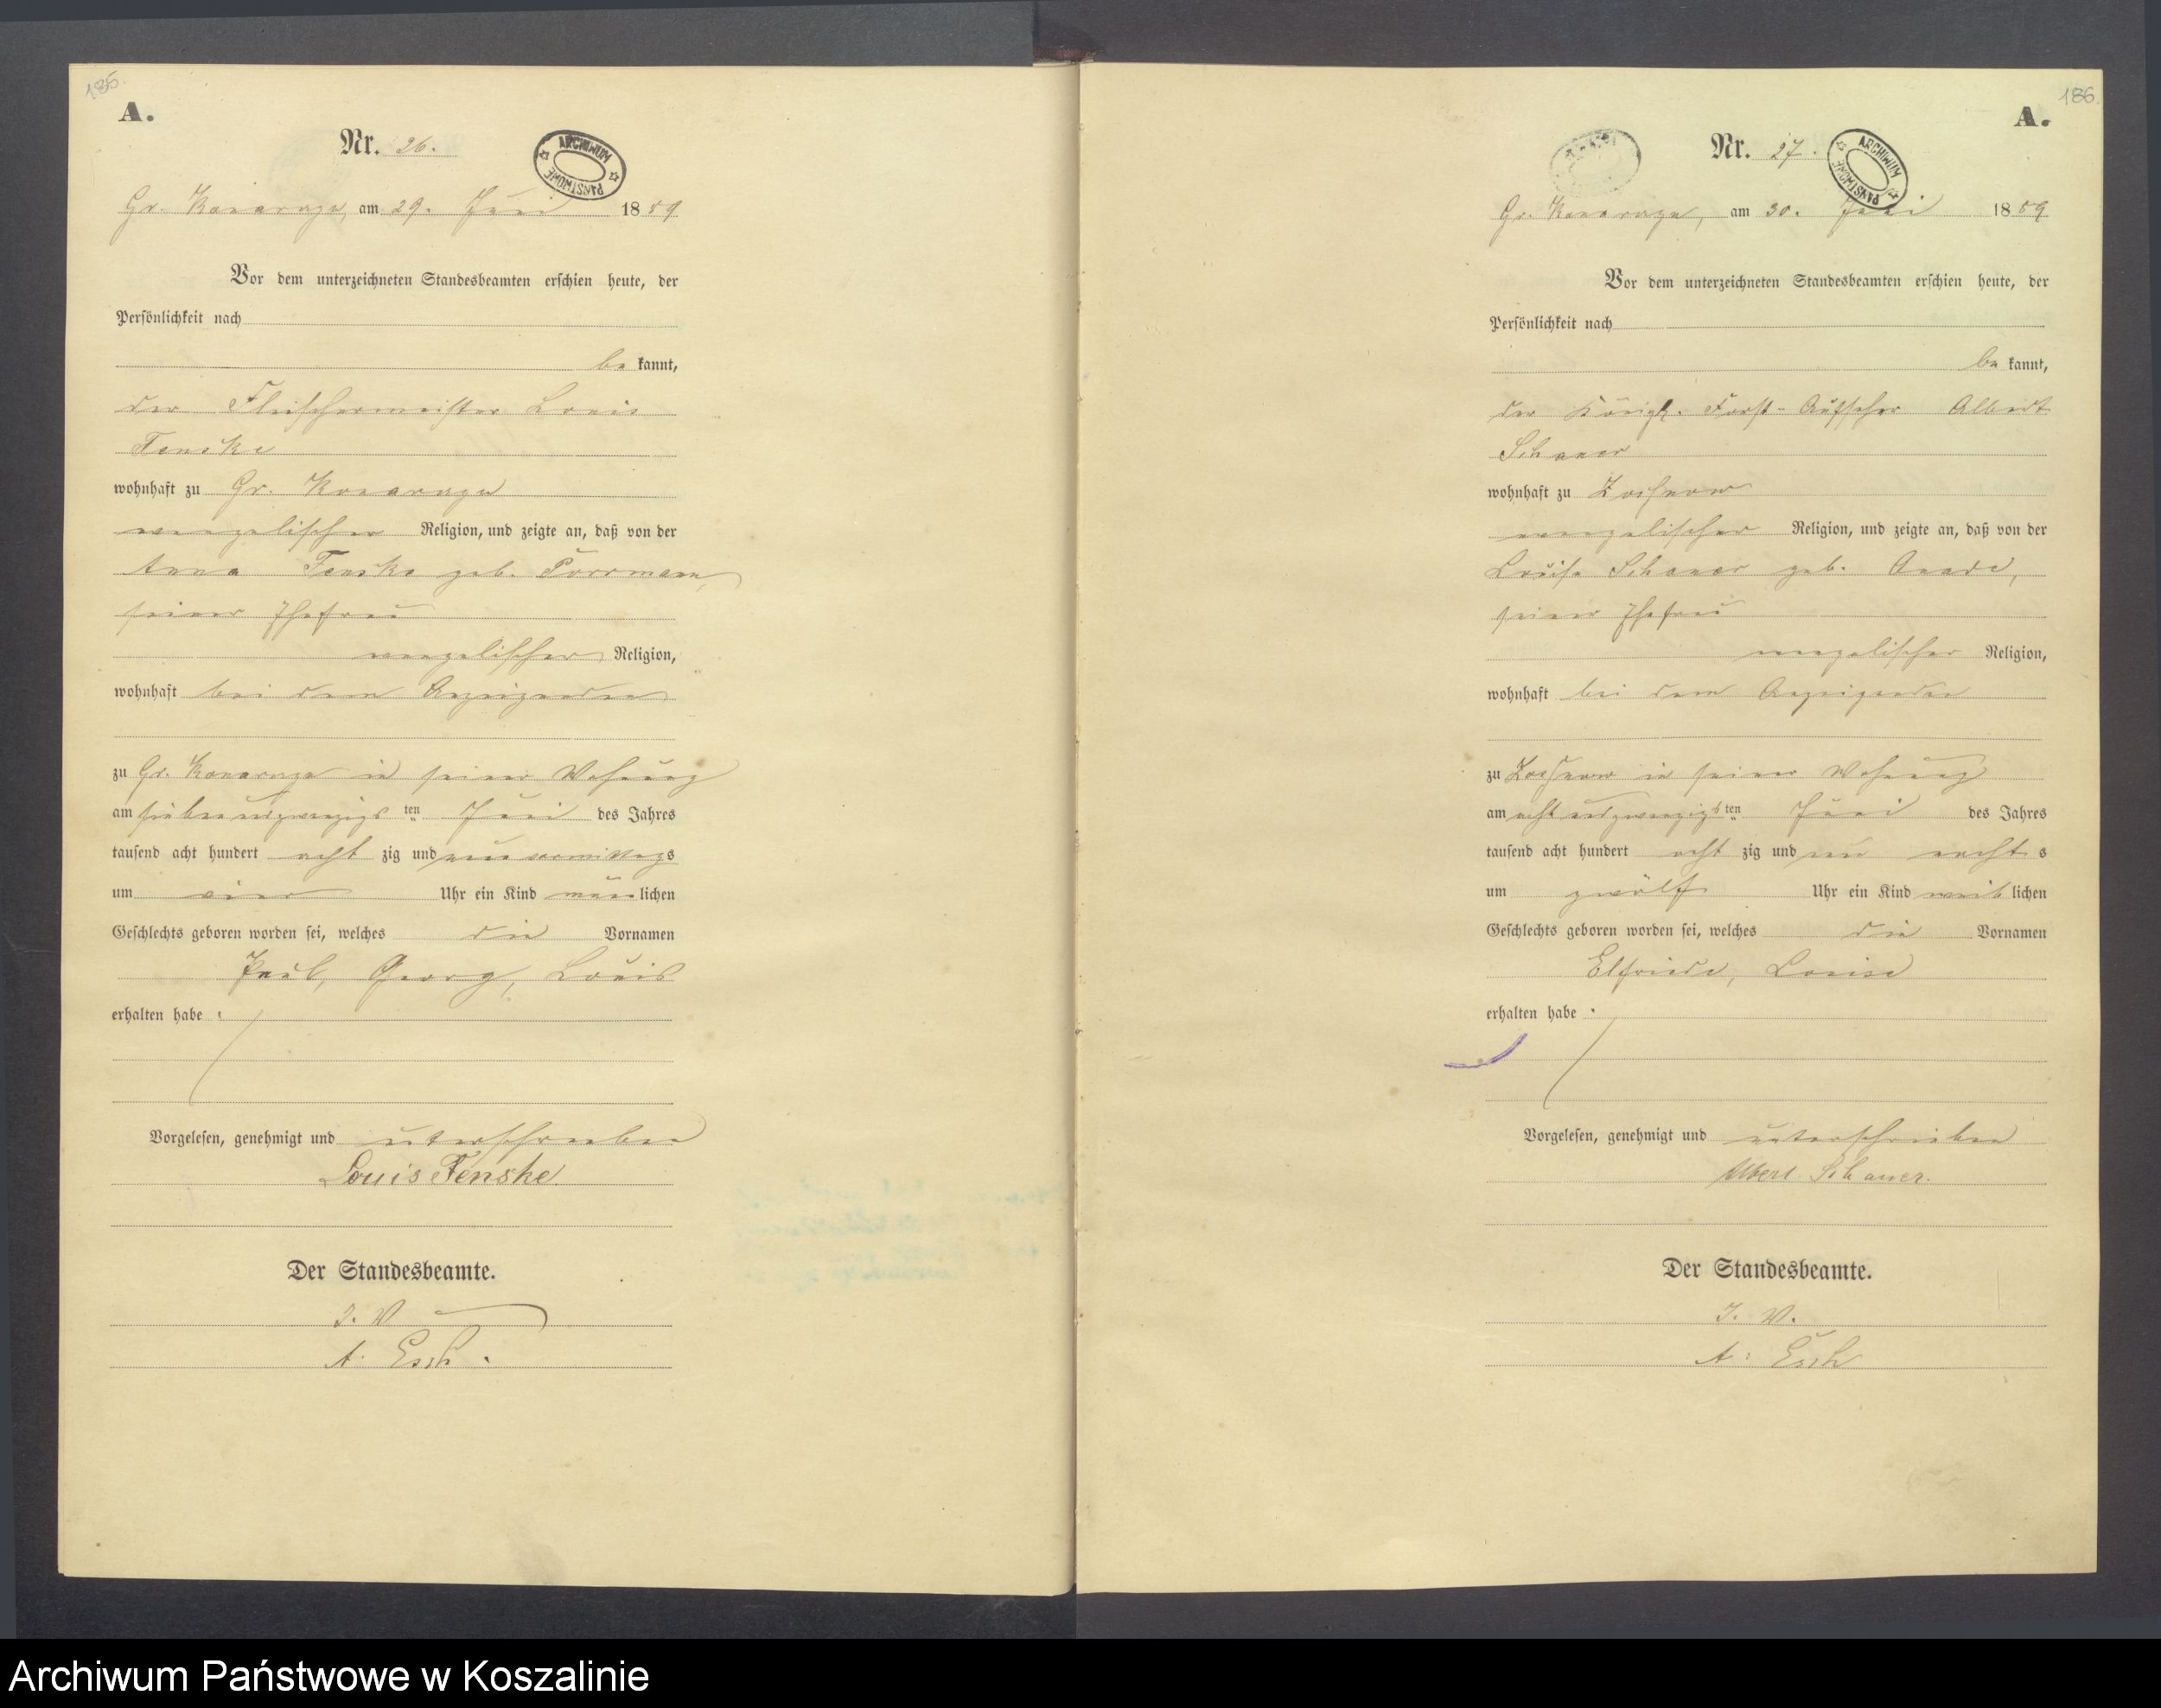 185.
A.
Nr. 26.
ARCHIWUM PAŃSTWOWE
Gr. Konarzyn, am 29. Juni 1889
Vor dem unterzeichneten Standesbeamten erschien heute, der
Persönlichkeit nach
be kannt,
der Fleischermeister Louis
Fenske
wohnhaft zu Gr. Konarzyn
evangelischer Religion, und zeigte an, daß von der
Anna Fenske geb. Porrmann,
seiner Ehefrau
evangelischer Religion,
wohnhaft bei dem Anzeigenden
zu Gr. Konarzyn in seiner Wohnung
am siebenundzwanzigs ten Juni des Jahres
tausend acht hundert acht zig und neun vormittags
um vier Uhr ein Kind männ lichen
Geschlechts geboren worden sei, welches die Vornamen
Paul, Georg, Louis
erhalten habe .
Vorgelesen, genehmigt und unterschrieben
Louis Fenske
Der Standesbeamte.
I. V.
A. Esch.
186.
A.
Nr. 27.
ARCHIWUM PAŃSTWOWE
Gr. Konarzyn, am 30. Juni 1889
Vor dem unterzeichneten Standesbeamten erschien heute, der
Persönlichkeit nach
be kannt,
der Königl. Forst-Aufseher Albert
Schauer
wohnhaft zu
evangelischer Religion, und zeigte an, daß von der
Louise Schauer geb. Anade,
seiner Ehefrau
evangelischer Religion,
wohnhaft bei dem Anzeigenden
zu in seiner Wohnung
am achtundzwanzigs ten Juni des Jahres
tausend acht hundert acht zig und neun nacht s
um zwölf Uhr ein Kind weib lichen
Geschlechts geboren worden sei, welches die Vornamen
Elfriede, Louise
erhalten habe .
Vorgelesen, genehmigt und unterschrieben
Albert Schauer.
Der Standesbeamte.
I. V.
A. Esch
Archiwum Państwowe w Koszalinie